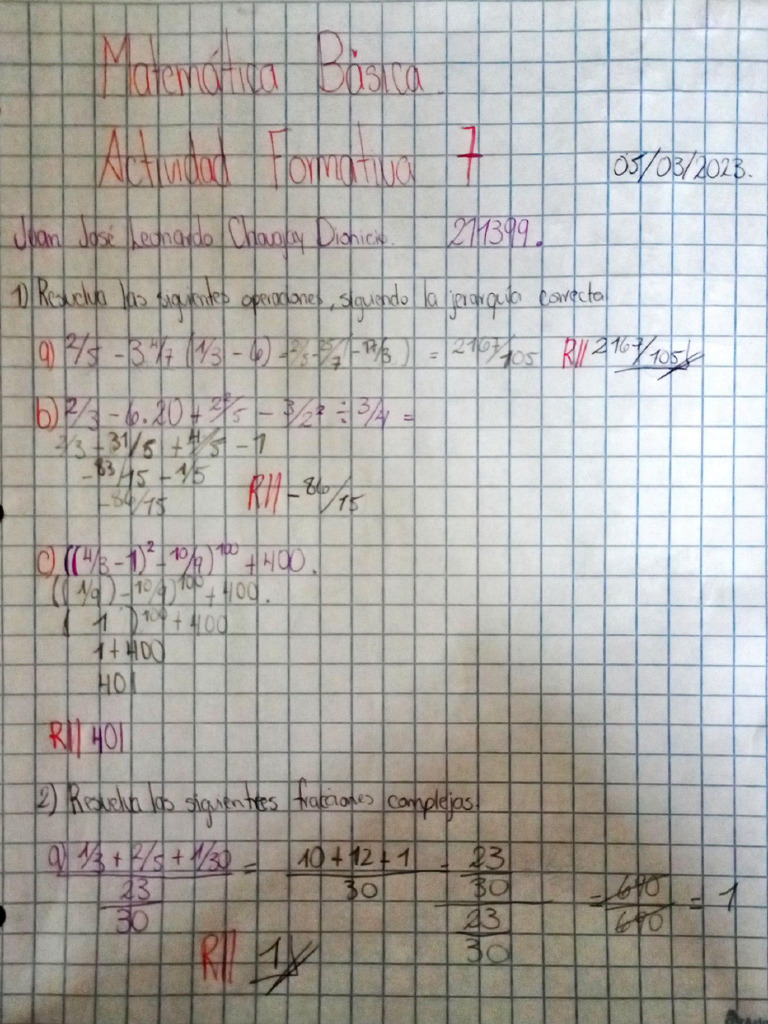 Matemática Básica
Actividad Formativa 7
05/03/2023.
Juan José Leonardo Chaugoy Dionicio. 211399.
1) Resuelva las siguientes operaciones, siguiendo la jerarquía correcta
a) 2/5 - 3 4/7 (1/3 - 6) = 2/5 - 25/7 (-17/3) = 2167/105 R// 2167/105
b) 2/3 - 6.20 + 2²/5 - 3/2² ÷ 3/4 =
2/3 - 31/5 + 4/5 - 1
-83/15 - 1/5
-86/15 R// -86/15
c) ((4/3 - 1)² - 10/9)¹⁰⁰ + 400.
((1/9) - 10/9)¹⁰⁰ + 400.
( 1 )¹⁰⁰ + 400
1 + 400
401
R// 401
2) Resuelva las siguientes fracciones complejas.
a) 1/3 + 2/5 + 1/30 = 10 + 12 + 1 = 23
23 30 30 = 690 = 1
30 23 690
30
R// 1